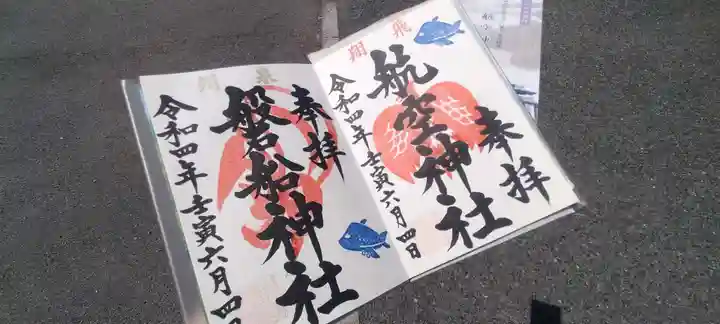 飛翔
奉拝
航空神社
令和四年壬寅六月四日
奉拝
磐船神社
令和四年壬寅六月四